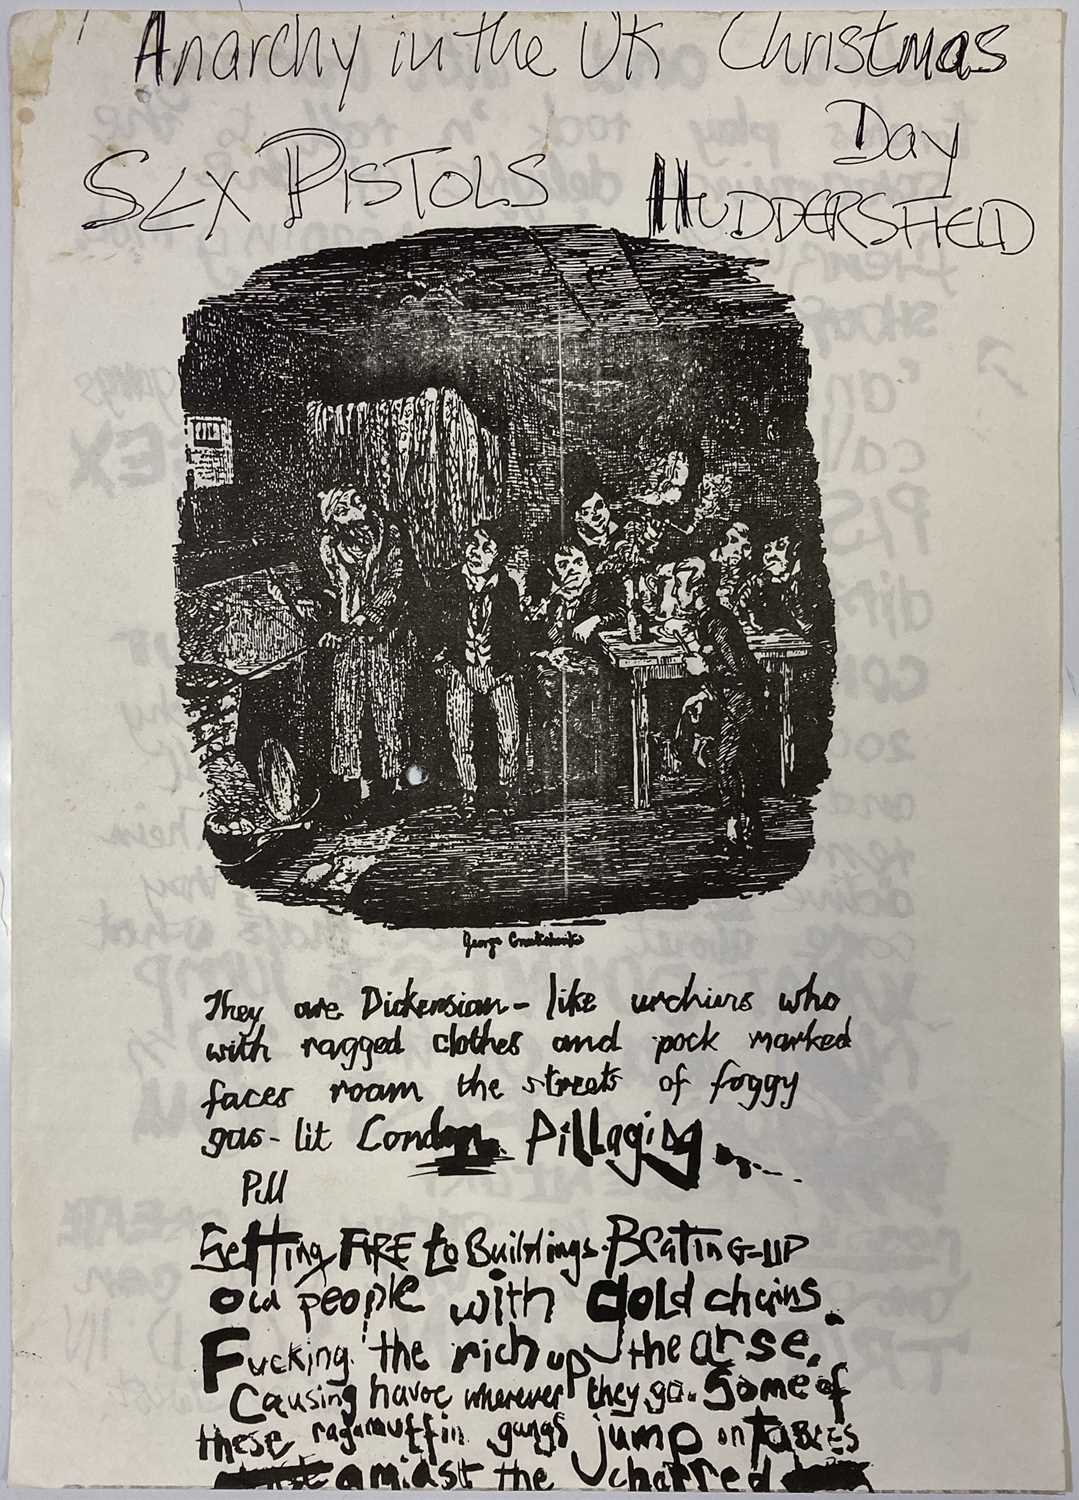 Anarchy in the UK Christmas
Day
SEX PISTOLS HUDDERSFIELD
George Cruikshank
They are Dickensian - like urchins who
with ragged clothes and pock marked
faces roam the streets of foggy
gas-lit London Pillaging
Pill
Setting FIRE to Buildings. BEATING-UP
old people with gold chains.
Fucking the rich up the arse.
Causing havoc wherever they go. Some of
these ragamuffin gangs jump on TABLES
amidst the charred